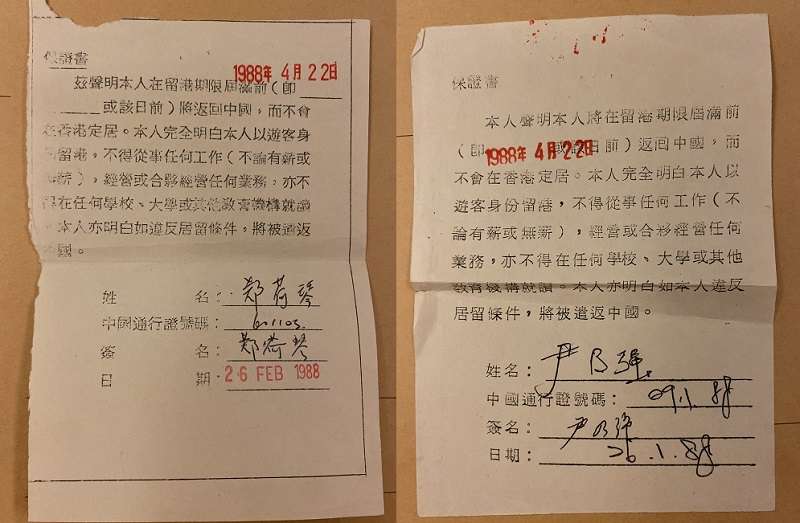 保證書
1988年 4月 22日
茲聲明本人在留港期限屆滿前(即
或該日前)將返回中國,而不會
在香港定居。本人完全明白本人以遊客身
份留港,不得從事任何工作(不論有薪或
無薪),經營或合夥經營任何業務,亦不
得在任何學校、大學或其他教育機構就讀
。本人亦明白如違反居留條件,將被遣返
中國。
姓 名: 郑荷琴
中國通行證號碼: 601103
簽 名: 郑荷琴
日 期: 26 FEB 1988
保證書
本人聲明本人將在留港期限屆滿前
(即 1988年 4月 22日 或該日前)返回中國,而
不會在香港定居。本人完全明白本人以
遊客身份留港,不得從事任何工作(不
論有薪或無薪),經營或合夥經營任何
業務,亦不得在任何學校、大學或其他
教育機構就讀。本人亦明白如本人違反
居留條件,將被遣返中國。
姓名: 尹乃强
中國通行證號碼:
簽名: 尹乃强
日期: 26.1.88